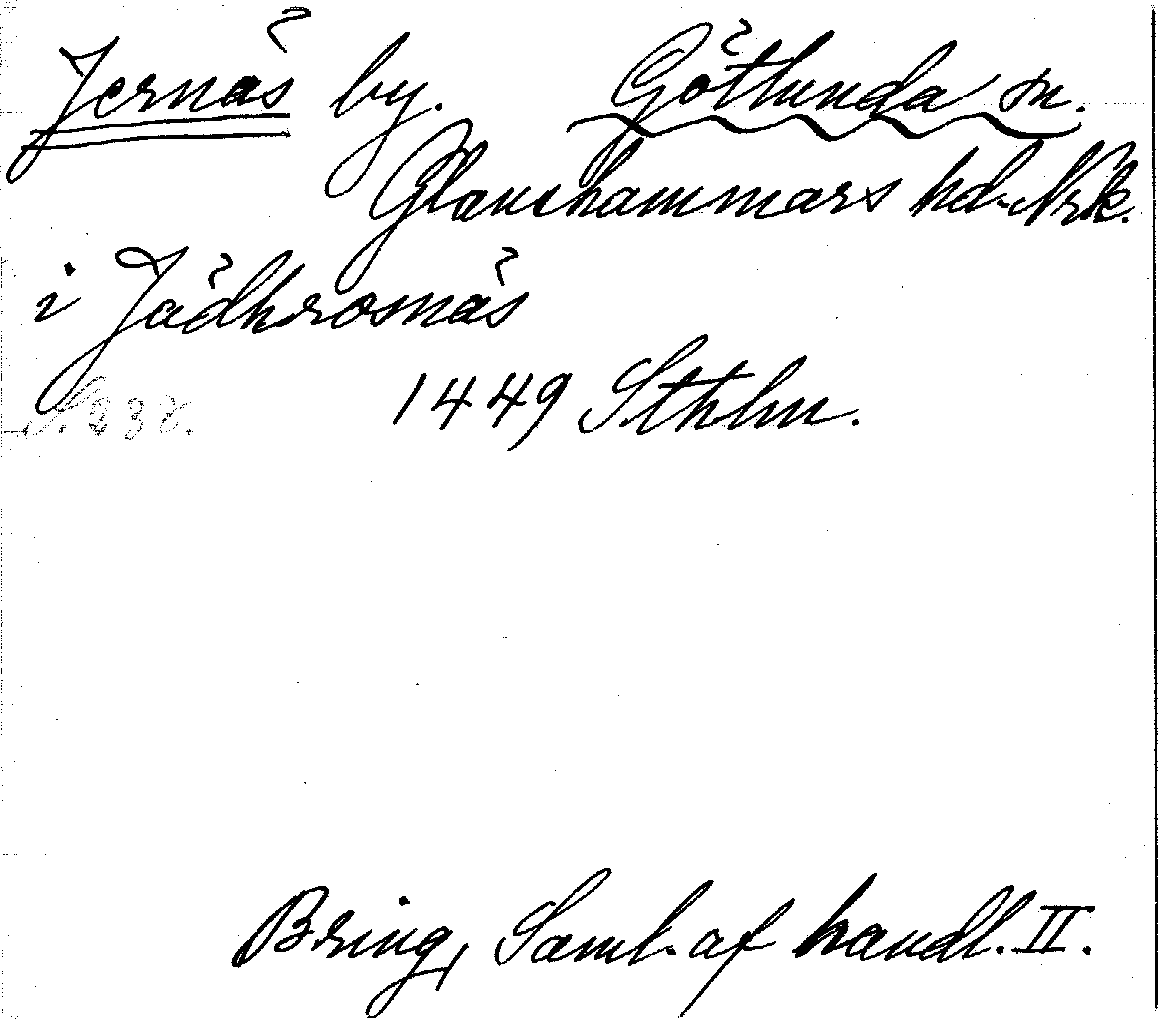 Jernäs by. Götlunda sn.
Glanshammars hd. Nrk.
i Jädhrosnäs
1449 Sthlm.
S. 237.
Bring, Saml. af handl. II.